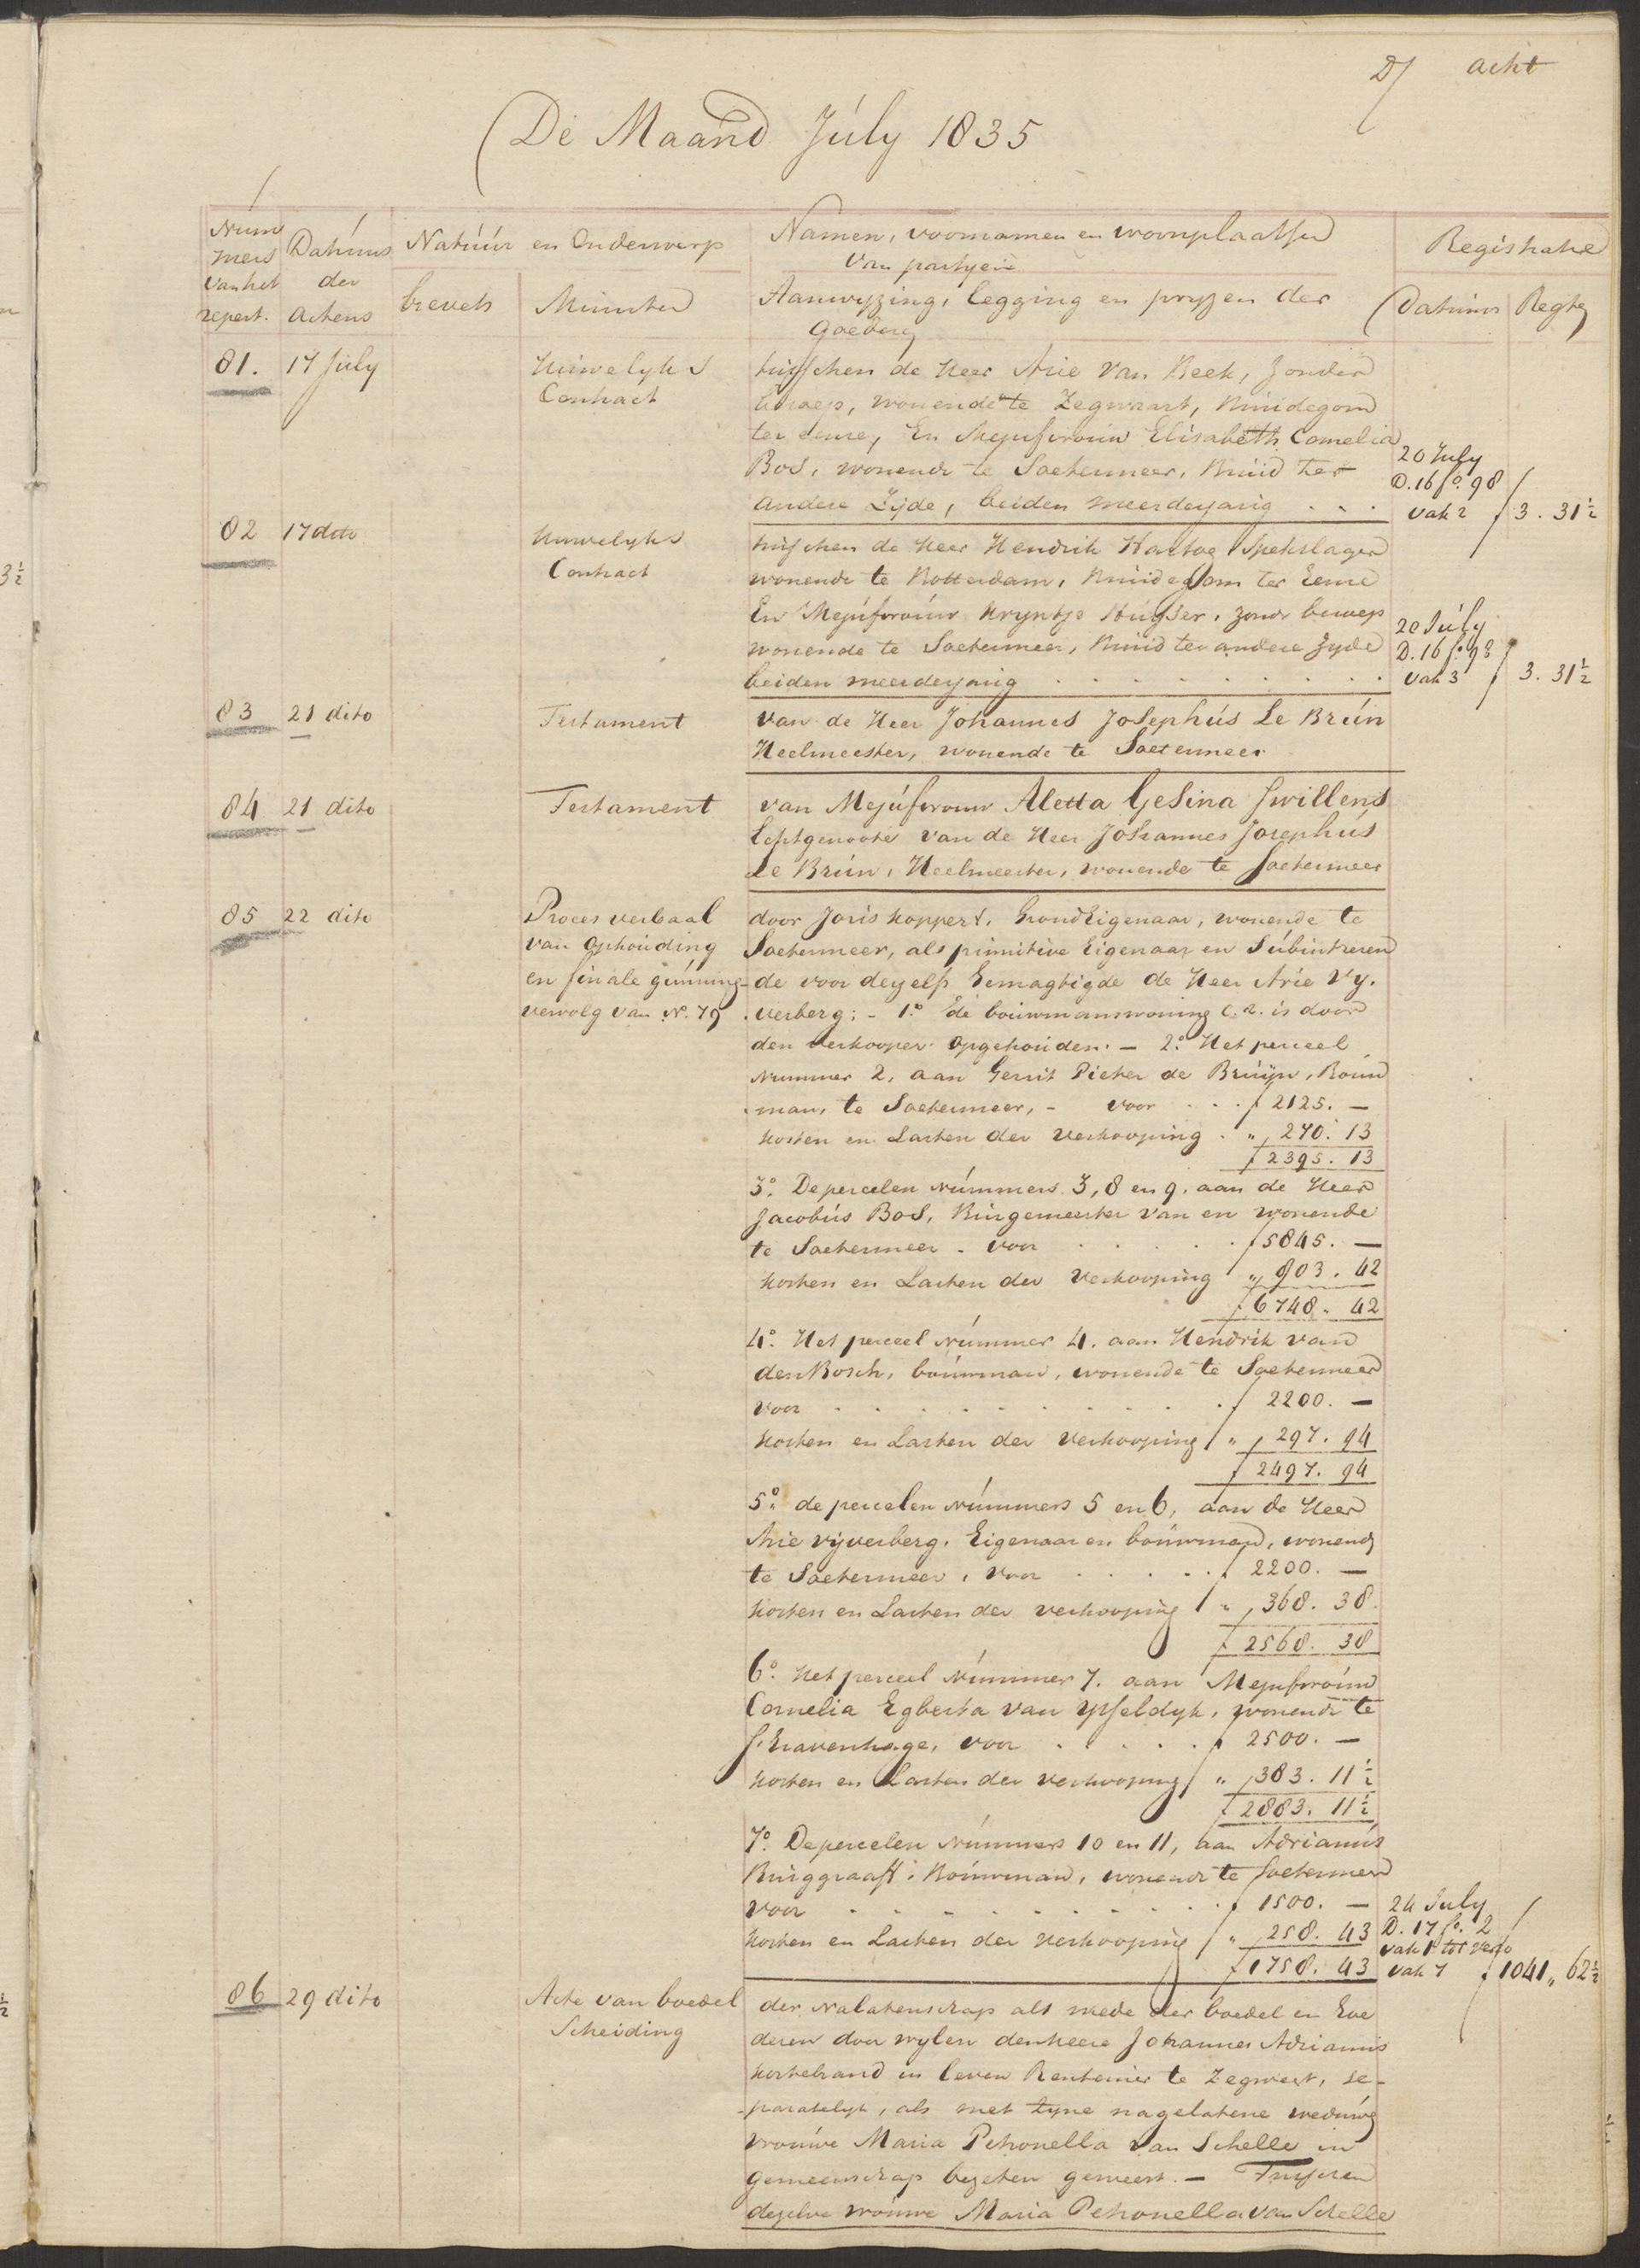 acht
De Maand July 1835
Num
mers
van het
repert.
Datums
der
actens
Natuur en Onderwerp
brevets
Minuten
Namen, voornamen en woonplaatsen
van partyen
Aanwyzing, legging en pryzen der
goederen
Registratie
Datums
Regten
81. 17 July Huwelyks
Contract
tusschen de Heer Arie van Beek, zonder
beroep, wonende te Zegwaart, Bruidegom
ter eenre, En Mejufvrouw Elisabeth Cornelia
Bos, wonende te Soetermeer, Bruid ter
andere Zijde, beiden meerderjarig . . .
20 July
D. 16 fo. 98
vak 2 f 3. 31½
82 17 dito Huwelyks
Contract
tusschen de Heer Hendrik Hartog Spekslager
wonende te Rotterdam, Bruidegom ter Eenre
En Mejufvrouw Kryntje Huyser, zonder beroep
wonende te Soetermeer, Bruid ter andere zyde
beiden meerderjarig
20 July
D. 16 fo. 98
vak 3 f 3. 31½
83 21 dito Testament
van de Heer Johannes Josephus Le Brun
Heelmeester, wonende te Soetermeer
84 21 dito Testament
van Mejufvrouw Aletta Gesina Swillens
Echtgenoote van de Heer Johannes Josephus
Le Brun, Heelmeester, wonende te Soetermeer
85 22 dito Proces verbaal
van Ophouding
en finale gunning
vervolg van No. 79
door Joris Koppert, GrondEigenaar, wonende te
Soetermeer, als primitive Eigenaar en Subintreren
de voor deszelfs Gemagtigde de Heer Arie Vy.
verberg; - 1o. De bouwmanswoning c.a. is door
den verkooper opgehouden. - 2o. Het perceel
Nummer 2, aan Gerrit Pieter de Bruijn, Bouw
man, te Soetermeer, - voor . . . f 2125. —
Kosten en Lasten der verkooping . „ 270. 13
f 2395. 13
3o. De percelen Nummers 3, 8 en 9. aan de Heer
Jacobus Bos, Burgemeester van en wonende
te Soetermeer - voor f 5845. —
Kosten en Lasten der verkooping „ 903. 42
f 6748. 42
4o. Het perceel Nummer 4. aan Hendrik van
den Bosch, bouwman, wonende te Soetermeer
voor f 2200. —
Kosten en Lasten der verkooping „ 297. 94
f 2497. 94
5o. de percelen Nummers 5 en 6, aan de Heer
Arie vijverberg, Eigenaar en bouwman, wonend
te Soetermeer, voor f 2200. —
Kosten en Lasten der verkooping „ 368. 38.
f 2568. 38
6o. Het perceel Nummer 7. aan Mejufvrouw
Cornelia Egberta van Ysseldyk, wonende te
s'Gravenhage, voor f 2500. —
Kosten en Lasten der verkooping „ 383. 11½
f 2883. 11½
7o. De percelen Nummers 10 en 11, aan Adrianus
Burggraaff, Bouwman, wonende te Soetermeer
voor f 1500. —
Kosten en Lasten der verkooping „ 258. 43
f 1758. 43
24 July
D. 17 fo. 2
vak 1 tot verso
vak 7 f 1041„ 62½
86 29 dito Acte van boedel
Scheiding
der Nalatenschap als mede der boedel en Goe
deren door wylen den heere Johannes Adrianus
Kortebrand in leven Rentenier te Zegwaart, se-
paratelyk, als met zyne nagelatene weduwe
vrouwe Maria Petronella van Schelle in
gemeenschap bezeten geweest. - Tusschen
dezelve vrouwe Maria Petronella van Schelle